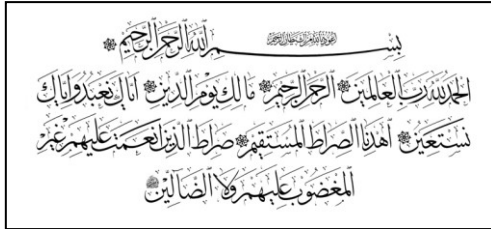 أعوذ بالله من الشيطان الرجيم
بسم الله الرحمن الرحيم
الحمد لله رب العالمين الرحمن الرحيم مالك يوم الدين اياك نعبد واياك
نستعين اهدنا الصراط المستقيم صراط الذين انعمت عليهم غير
المغضوب عليهم ولا الضالين